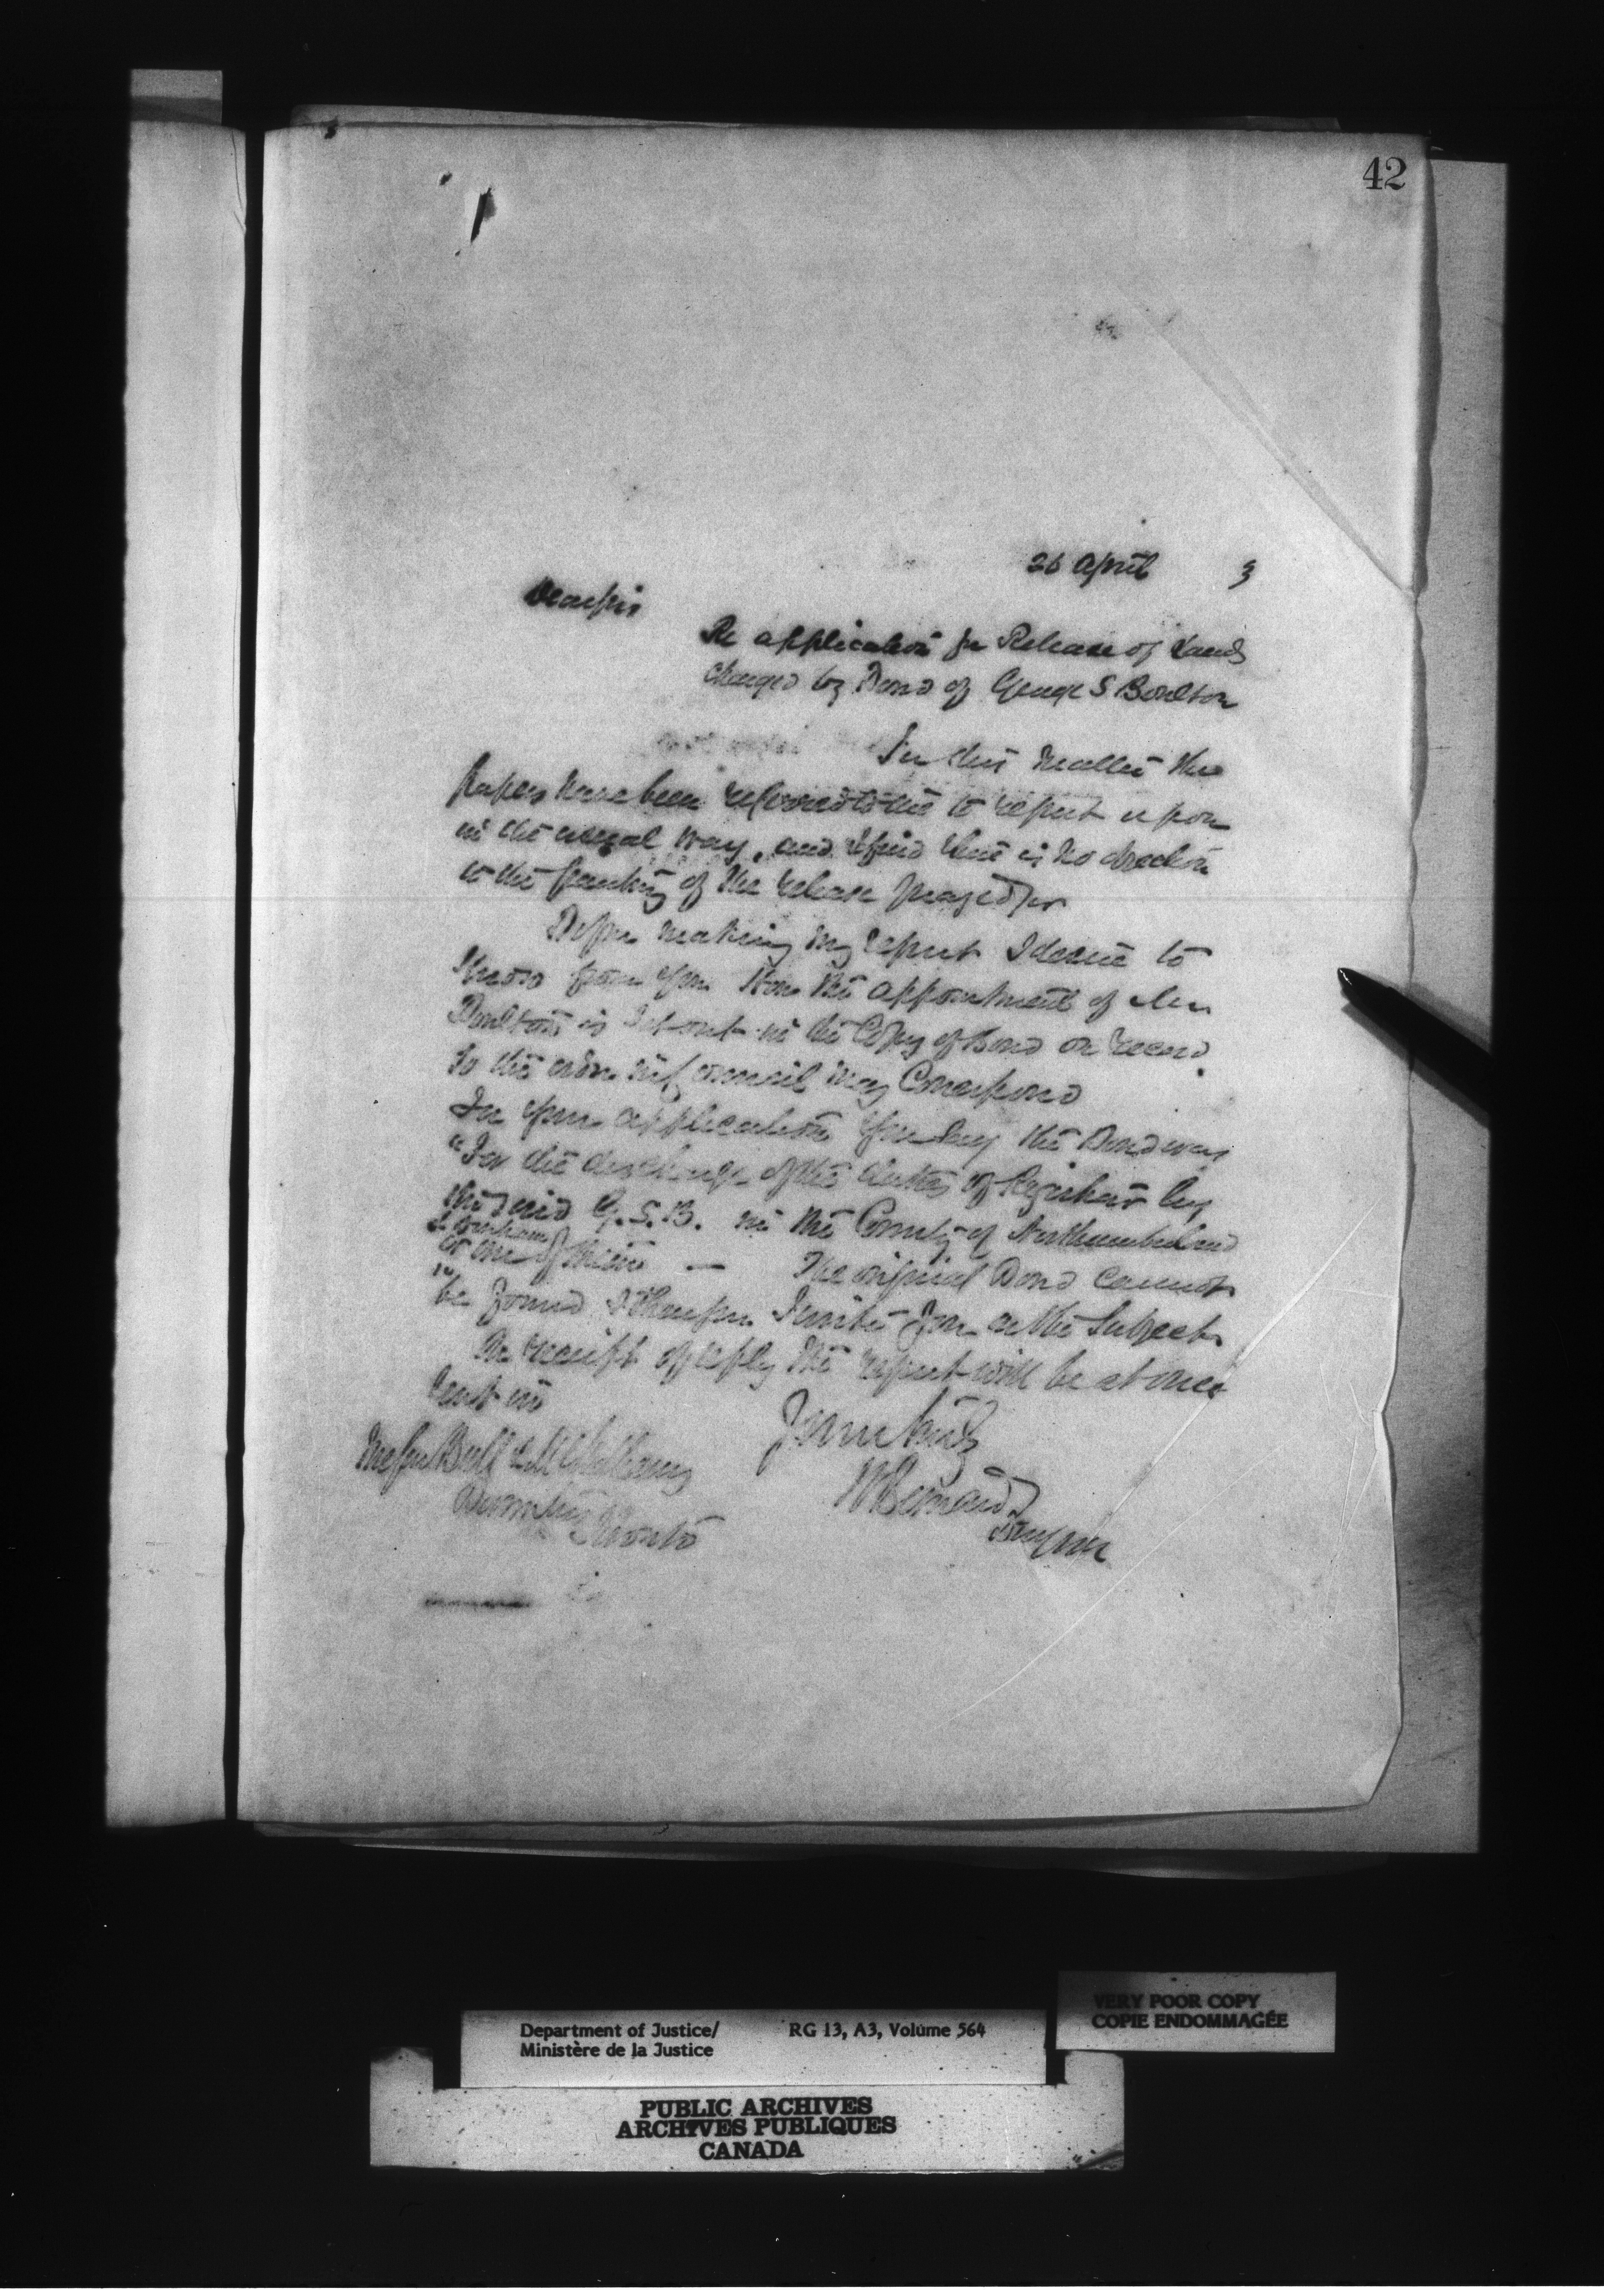 42
26 April 3
Dear Sir
Re application for Release of Lands
charged by Bond of George S Boulton
In this matter the
papers have been referred to me to report upon
in the usual way, and I find there is no objection
to the granting of the release prayed for
Before making my report I desire to
know from you How the appointment of Mr
Boulton is set out in the Copy of Bond on record
So the order in Council may Correspond
In your application you say the Bond was
"For the discharge of the duties of Registrar by
the said G. S. B. in the County of Northumberland
& Durham
or one of them — The original Bond cannot
be found & I therefore write you on the Subject
On receipt of reply the report will be at once
sent in
Yours truly
Messrs Bell &
H Bernard
Toronto
Department of Justice/ RG 13, A3, Volume 564
Ministère de la Justice
VERY POOR COPY
COPIE ENDOMMAGÉE
PUBLIC ARCHIVES
ARCHIVES PUBLIQUES
CANADA